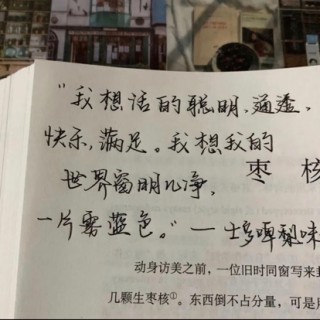 “我想活的聪明、通透,
快乐,满足。我想我的
世界窗明几净,
一片雾蓝色。”— 士多啤梨味
枣 核
动身访美之前，一位旧时同窗写来封
几颗生枣核①。东西倒不占分量，可是用